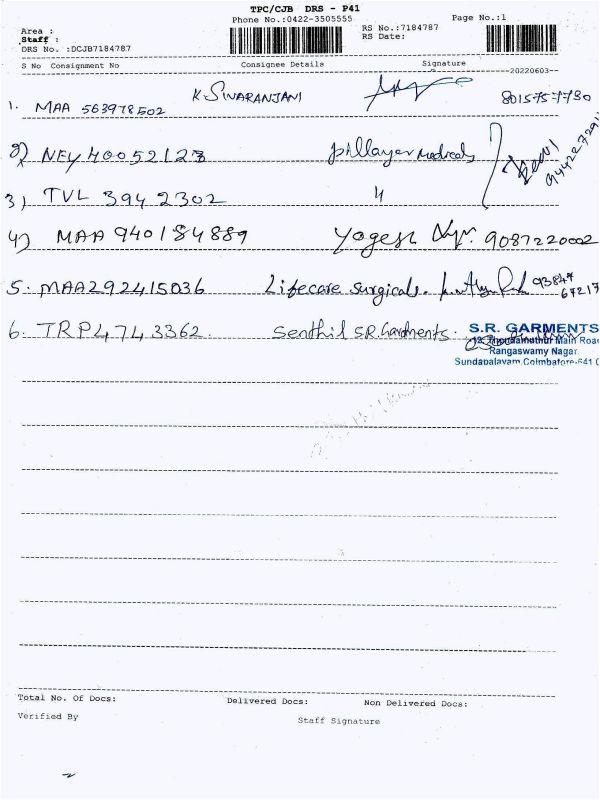 TPC/CJB DRS - P41
Phone No.:0422-3505555
Page No.:1
Area :
Staff :
DRS No. :DCJB7184787
RS No.:7184787
RS Date:
S No Consignment No Consignee Details Signature
20220603
1. MAA 563978502 K. SIVARANJANI 8015757730
2) NEY 40052127 pillayar Medicals
3) TVL 394 2302 "
4) MAA 940184889 Yogesh 9087220002
5. MAA292415036 Lifecare surgicals. 93847
67217
6. TRP4743362. Senthil S.R. Garments.
S.R. GARMENTS
Main Road
Rangaswamy Nagar
Sundapalayam, Coimbatore-641 0
Total No. Of Docs: Delivered Docs: Non Delivered Docs:
Verified By Staff Signature